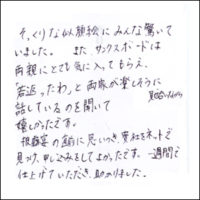 そっくりな似顔絵にみんな驚いて
いました。 また サンクスボードは
両親にとても気に入ってもらえ、
"若返ったわ"と両家が楽しそうに
見せ合いながら
話しているのを聞いて
嬉しかったです。
披露宴の前に思いつき、貴社をネットで
見つけ、申し込みをしてよかったです。一週間で
仕上げていただき、助かりました。